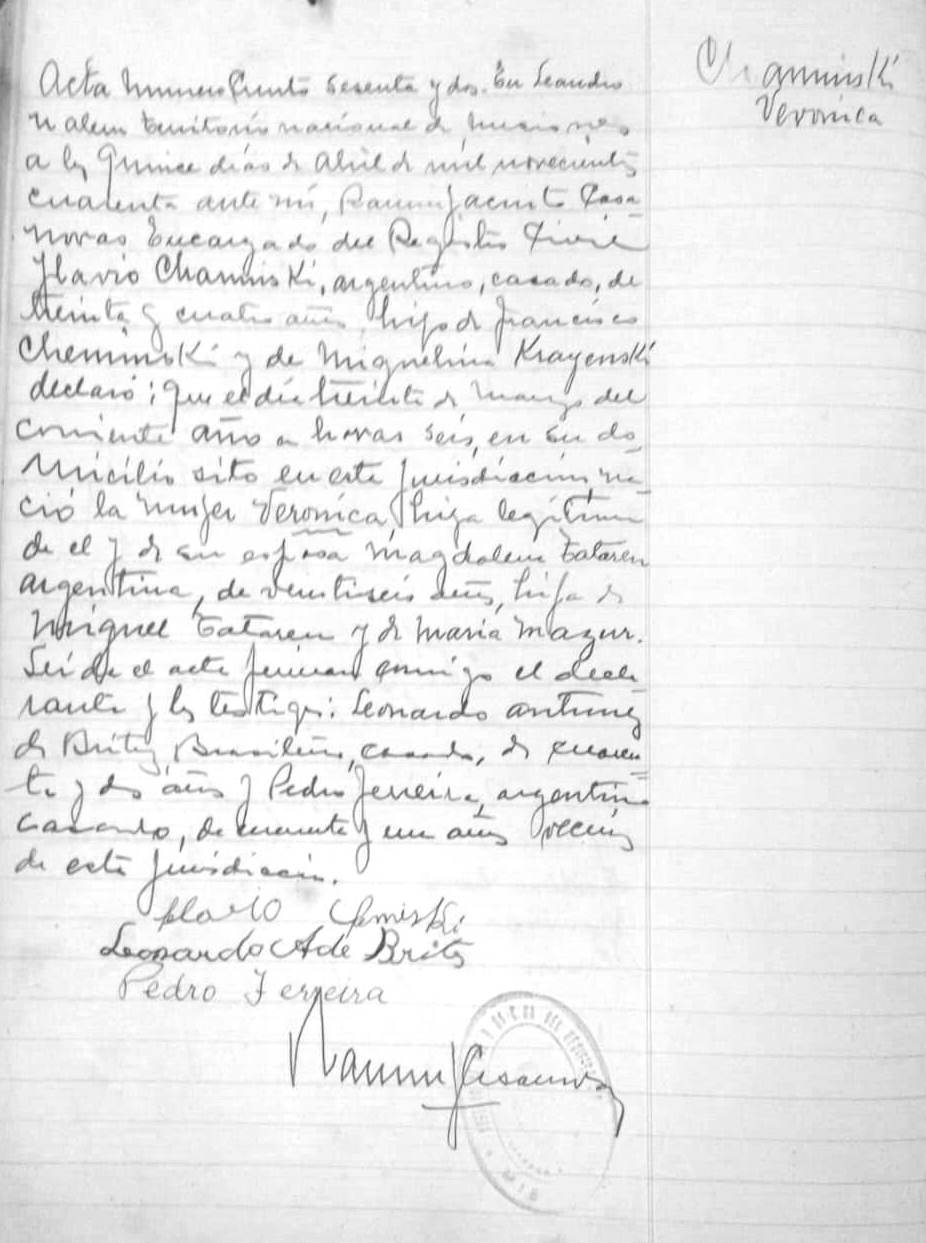 Chamniski
Veronica
Acta numero Ciento sesenta y dos. En Leandro
N alem territorio nacional de Misiones
a los quince dias de Abril de mil novecientos
cuarenta ante mi, Ramon Jacinto Casa
novas Encargado del Registro Civil
Flavio Chaminski, argentino, casado, de
treinta y cuatro años, hijo de Francisco
Cheminski y de Miguelina Krayenski
declaró; Que el dia treinta de Marzo del
corriente año a horas seis, en su do
micilio sito en esta jurisdiccion, na
ció la mujer Veronica, hija legitima
de el y de su esposa Magdalena Tataren
argentina, de veintiseis años, hija de
Miguel Tataren y de Maria Mazur.
Leida el acta firman conmigo el decla
rante y los testigos: Leonardo Antunez
de Britez, Brasileño, casado, de cuaren
ta y dos años y Pedro Ferreira, argentino
casado, de cuarenta y un años vecinos
de esta jurisdiccion.
flavio Chemiski
Leonardo A de Brites
Pedro Ferreira
Ramon J Casanovas